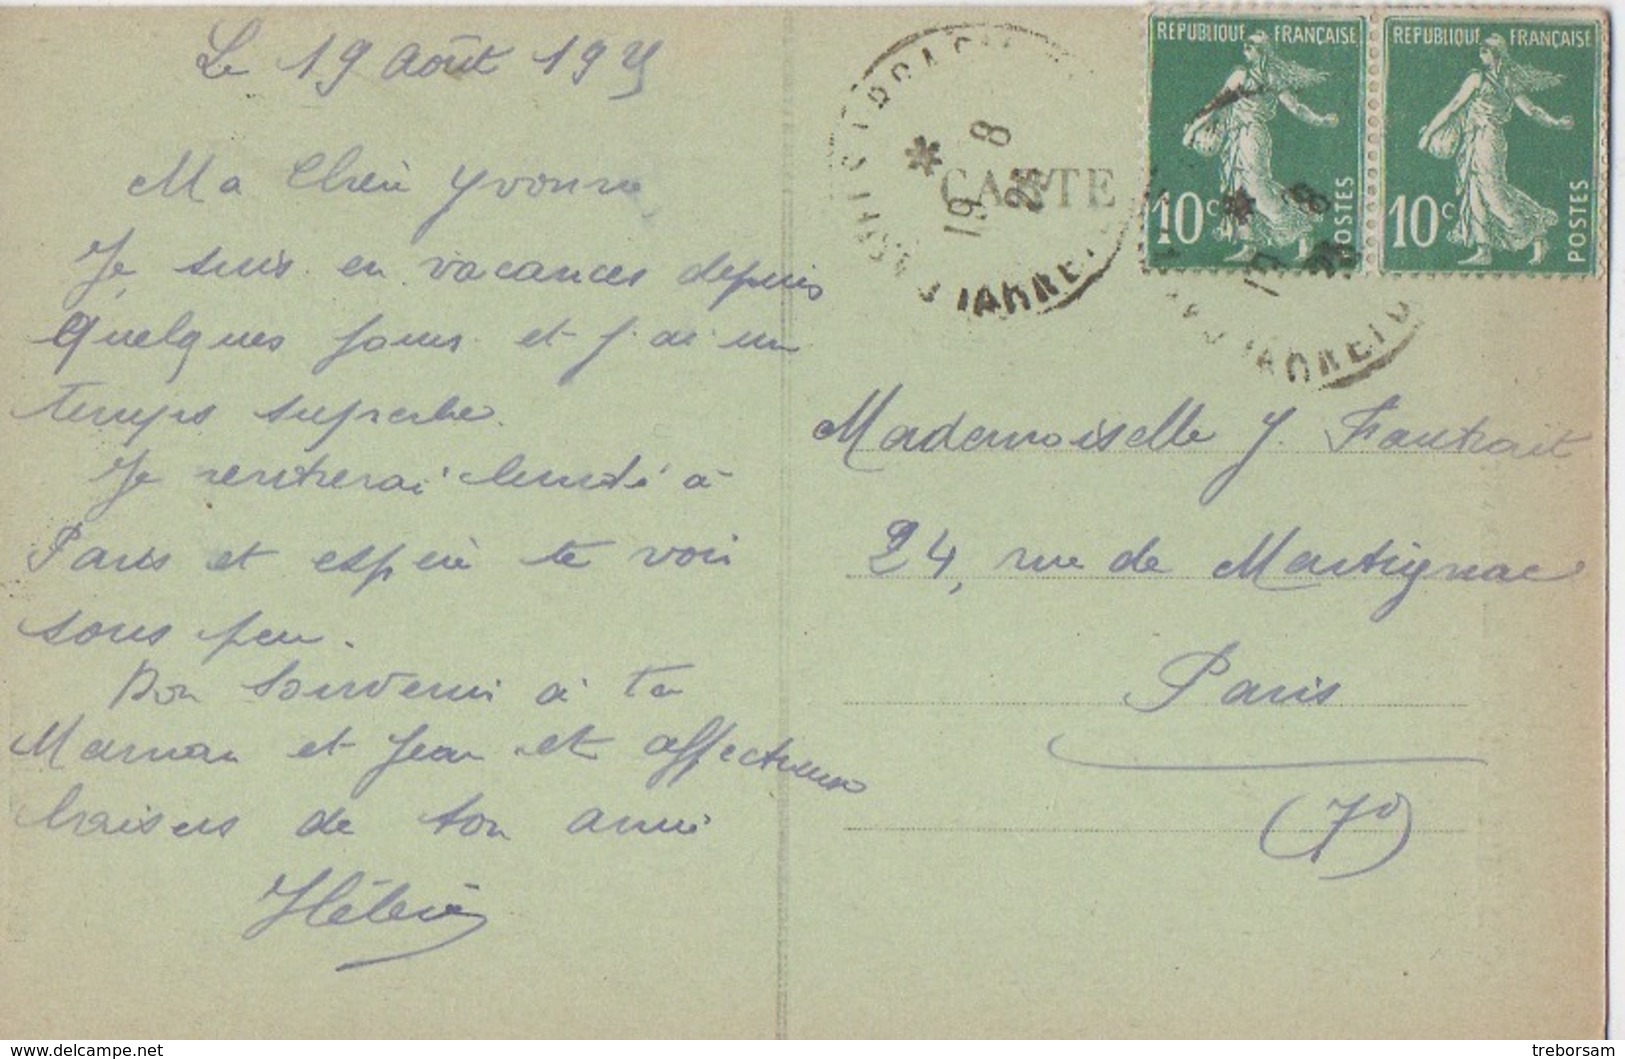 Le 19 Août 1925
Ma Chère Yvonne,
Je suis en vacances depuis
quelques jours et j'ai un
temps superbe.
Je rentrerai lundi à
Paris et espère te voir
sous peu.
Bon souvenir à ta
Maman et Jean et affectueux
baisers de ton amie
Hélène
CARTE
* 19 8 25
RÉPUBLIQUE FRANÇAISE
10c
POSTES
RÉPUBLIQUE FRANÇAISE
10c
POSTES
Mademoiselle Y. Fautrait
24, rue de Martignac
Paris
(7e)
delcampe.net
treborsam